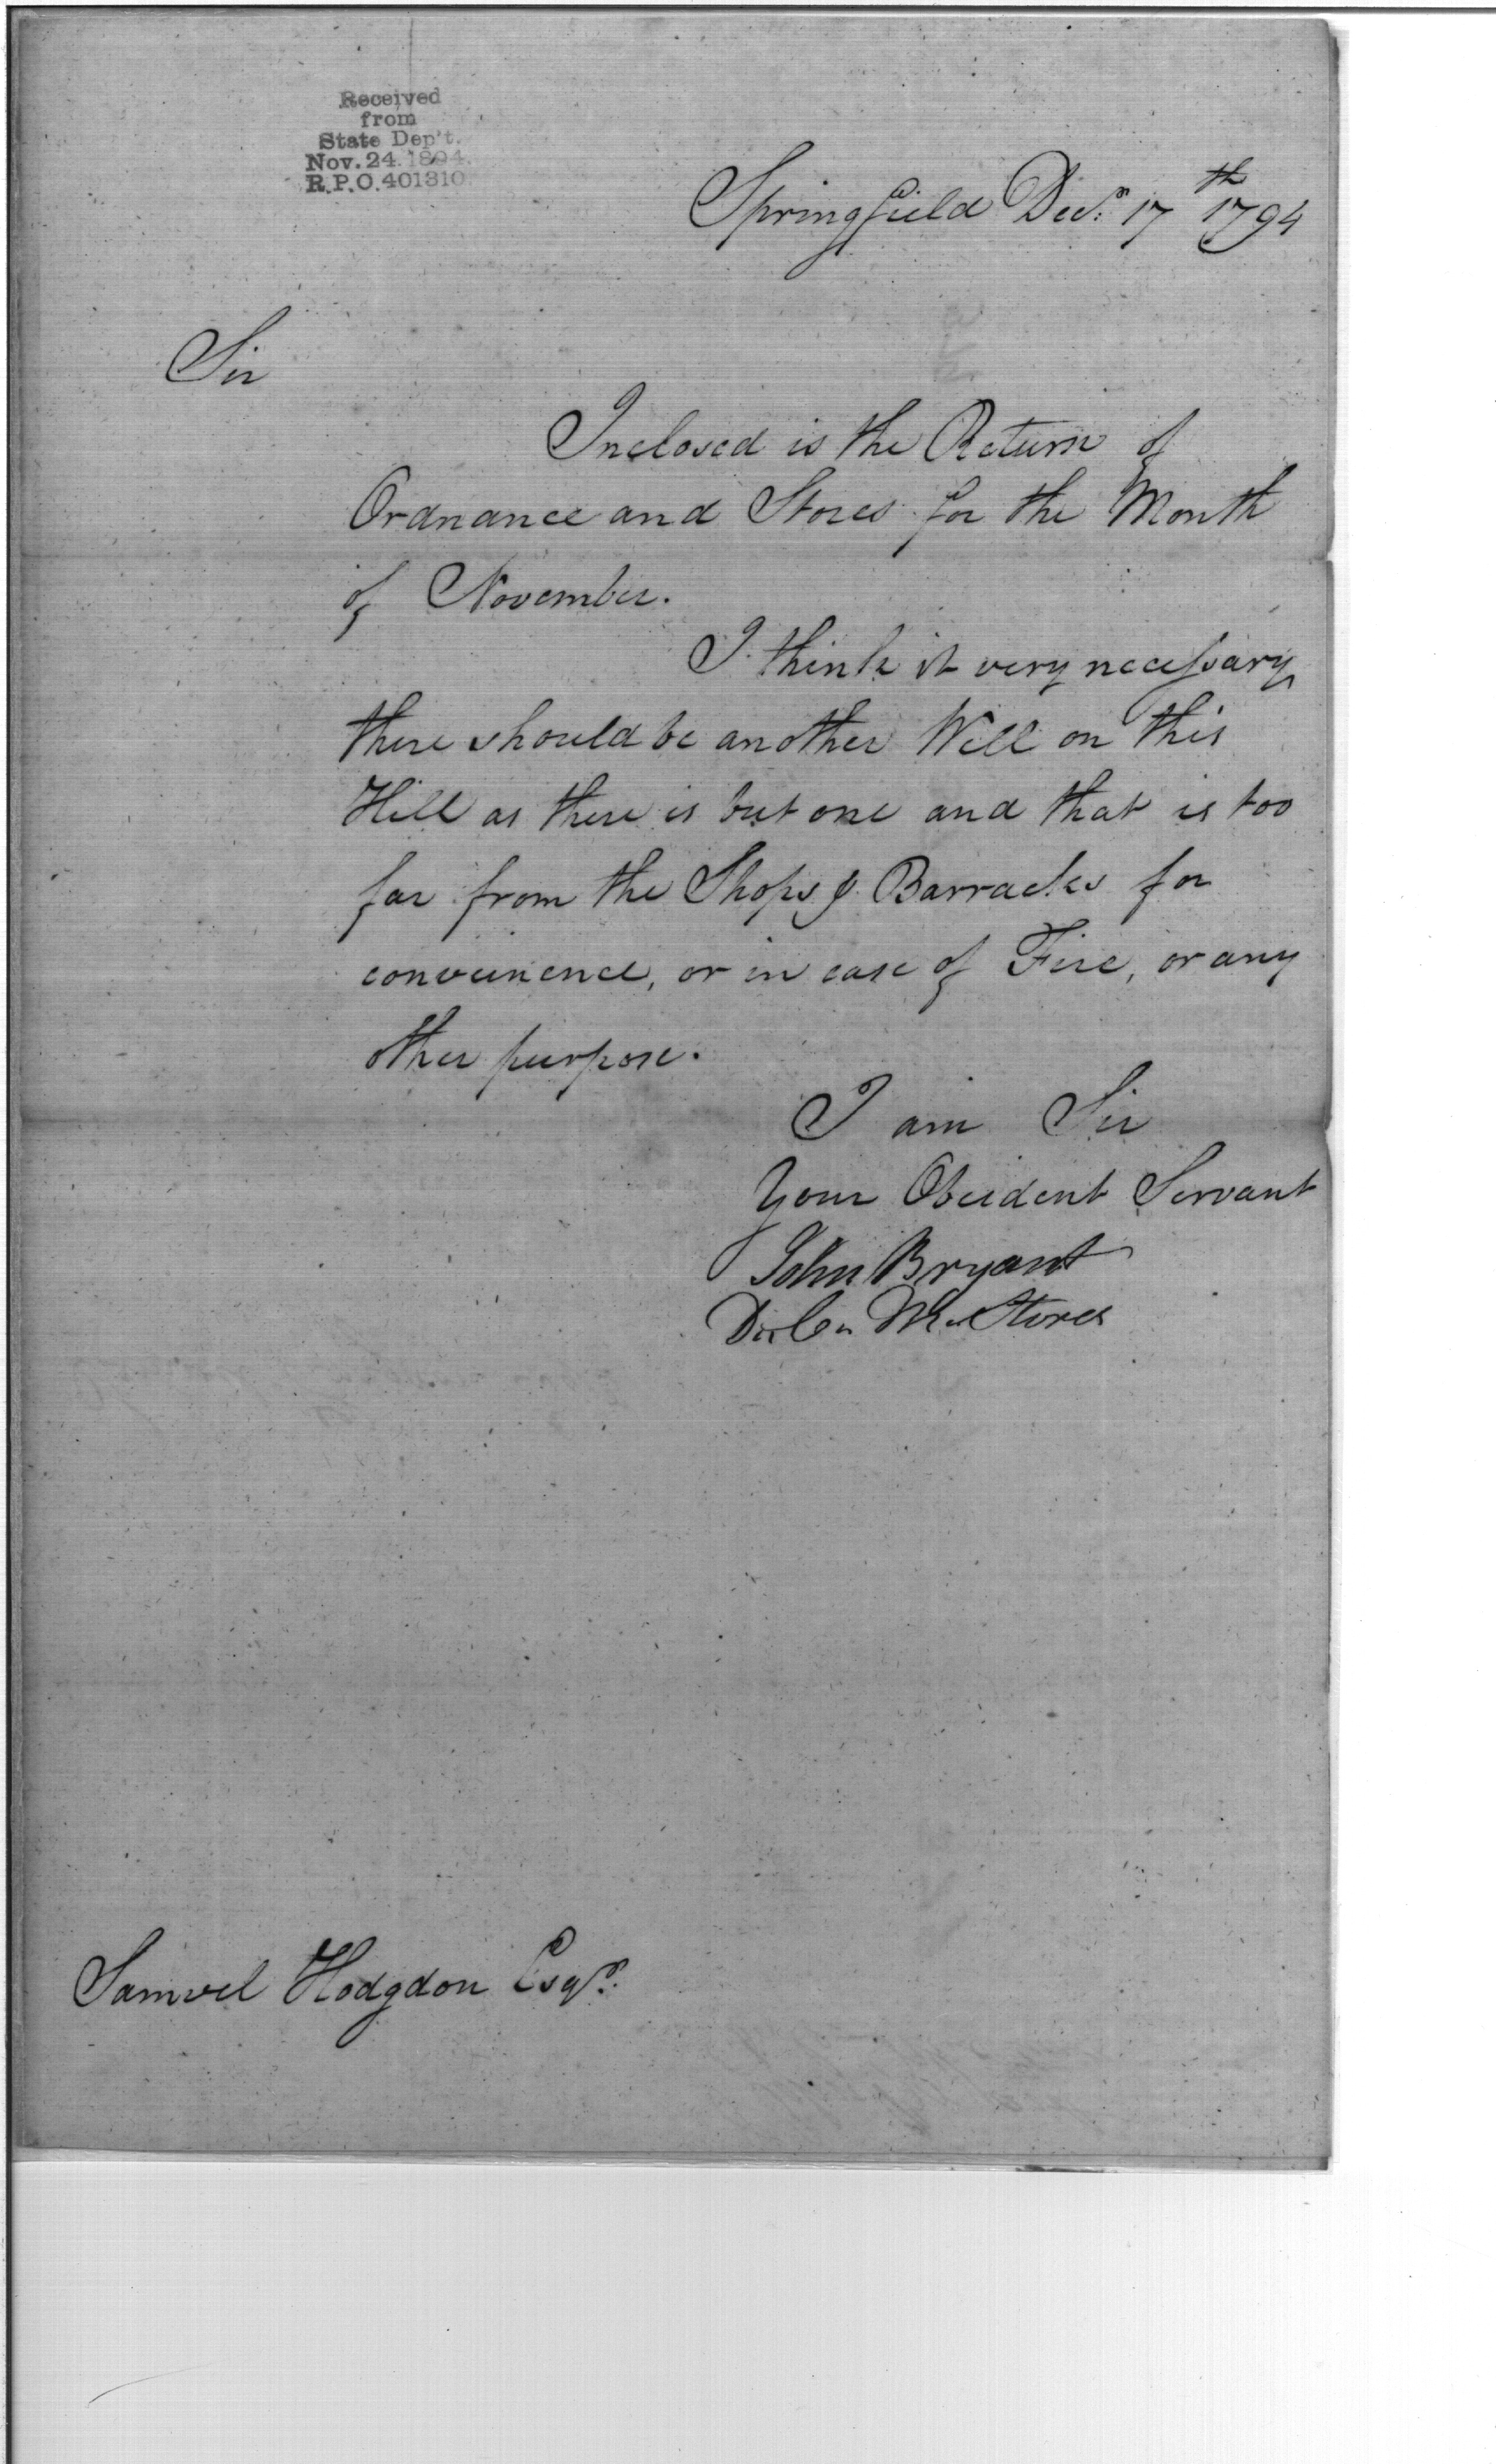 Received
from
State Dep't.
Nov. 24. 1894.
R.P.O. 401310.
Springfield Decr. 17th 1794
Sir
Inclosed is the Return of
Ordnance and Stores for the Month
of November.
I think it very necessary
there should be another Well on this
Hill as there is but one and that is too
far from the Shops & Barracks for
conveinence, or in case of Fire, or any
other purpose.
I am Sir
Your Obeident Servant
John Bryant
M. Stores
Samuel Hodgdon Esqr.